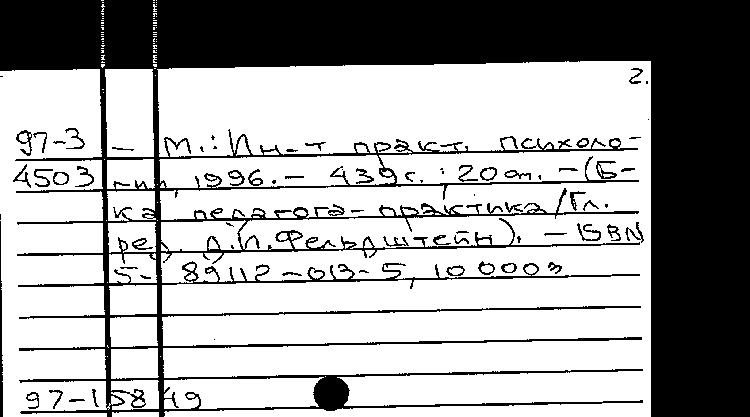 2.
97-3 – М.: Ин-т практ. психоло-
4503 гии, 1996. – 439 с. ; 20 см. – (Б-
ка педагога-практика / Гл.
ред. Д.И. Фельдштейн). – ISBN
5-89112-013-5, 10 000 э
97-15849